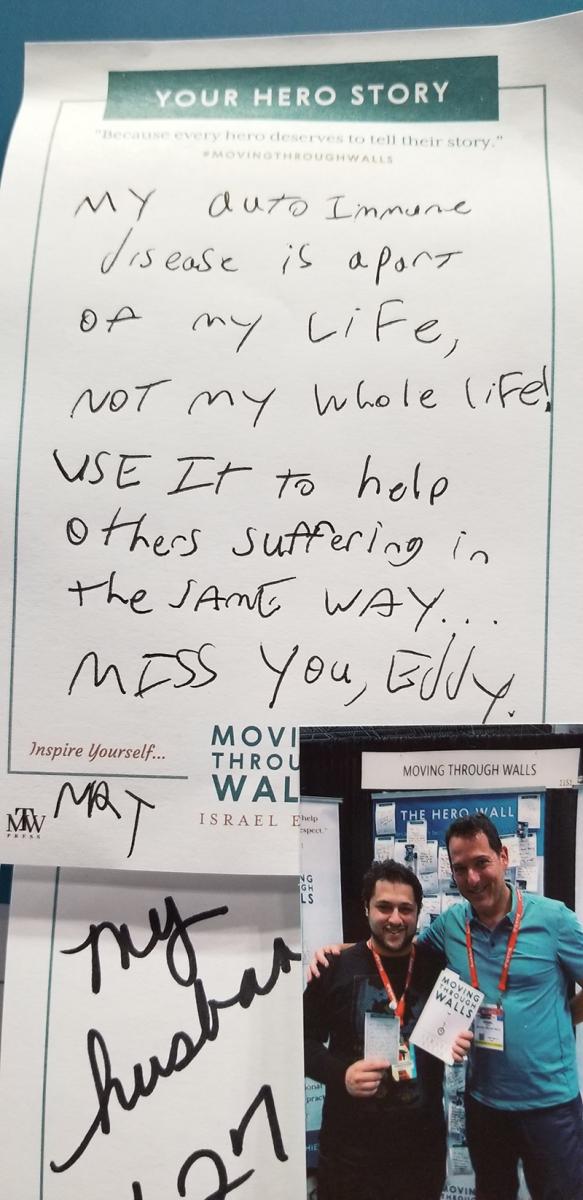 YOUR HERO STORY
"Because every hero deserves to tell their story."
#MOVINGTHROUGHWALLS
MY auto Immune
disease is apart
OF my LiFe,
NOT my whole liFe!
USE It to help
others suffering in
the SAME WAY...
MISS You, Eddy.
Inspire Yourself...
MOVI
THROU
WAL
ISRAEL E
MTW
PRESS
my
husban
27
MOVING THROUGH WALLS
1151
THE HERO WALL
help
spect."
NG
GH
LS
MOVING
THROUGH
WALLS